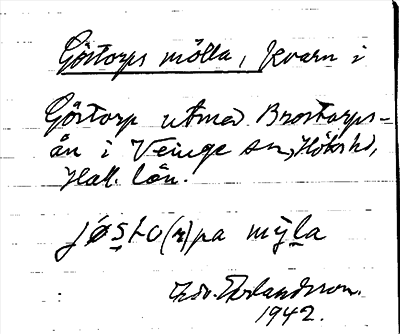 Göstorps mölla, kvarn i
Göstorp utmed Brostorps-
ån i Veinge sn, Höks hd,
Hall. län.
jøsto(r)pa myla
Edv. Erlandsson.
1942.